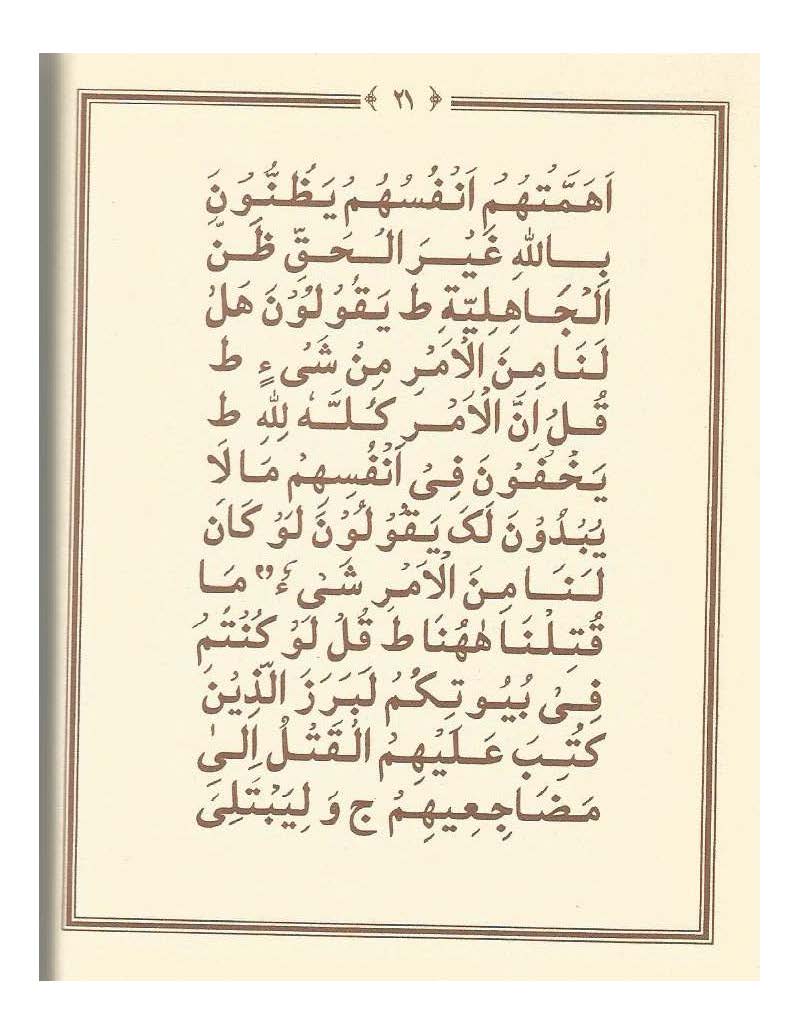 ﴿ ٢١ ﴾
اَهَمَّتْهُمْ اَنْفُسُهُمْ يَظُنُّوْنَ
بِاللّٰهِ غَيْرَ الْحَقِّ ظَنَّ
الْجَاهِلِيَّةِ ط يَقُوْلُوْنَ هَلْ
لَنَا مِنَ الْاَمْرِ مِنْ شَىْءٍ ط
قُلْ اِنَّ الْاَمْرَ كُلَّهٗ لِلّٰهِ ط
يَخْفُوْنَ فِىْ اَنْفُسِهِمْ مَا لَا
يُبْدُوْنَ لَكَ يَقُوْلُوْنَ لَوْ كَانَ
لَنَا مِنَ الْاَمْرِ شَىْءٌ مَا
قُتِلْنَا هٰهُنَا ط قُلْ لَوْ كُنْتُمْ
فِىْ بُيُوتِكُمْ لَبَرَزَ الَّذِيْنَ
كُتِبَ عَلَيْهِمُ الْقَتْلُ اِلىٰ
مَضَاجِعِيهِمْ ج وَ لِيَبْتَلِىَ